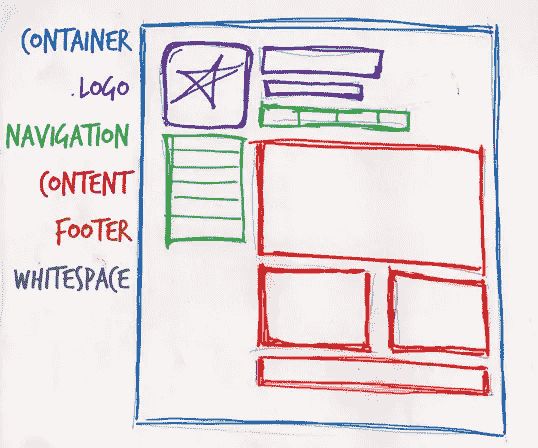 CONTAINER
.LOGO
NAVIGATION
CONTENT
FOOTER
WHITESPACE